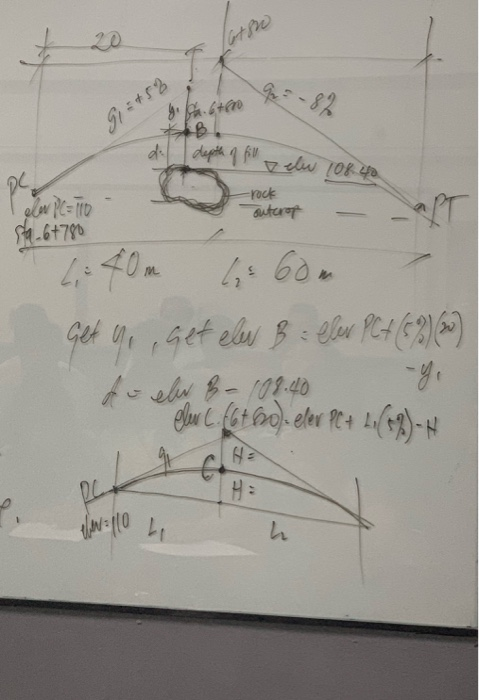 20
6+820
g₁ = +5%
g₂ = -8%
y₁
Sta. 6+800
B
d:
depth of fill
▽ elev 108.40
PC
elev PC = 110
Sta. 6+780
rock
outcrop
PT
L₁ = 40 m
L₂ = 60 m
Get y₁, get elev B = elev PC + (5%)(20)
- y₁
d = elev B - 108.40
elev C. (6+820) = elev PC + L₁(5%) - H
g₁
C
H =
H =
PC
elev = 110
L₁
L₂
P.